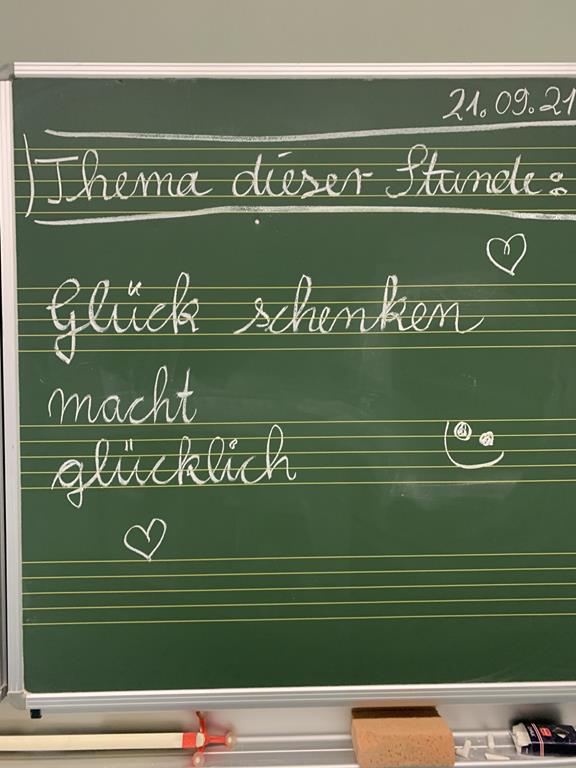 21.09.21
Thema dieser Stunde:
Glück schenken
macht
glücklich